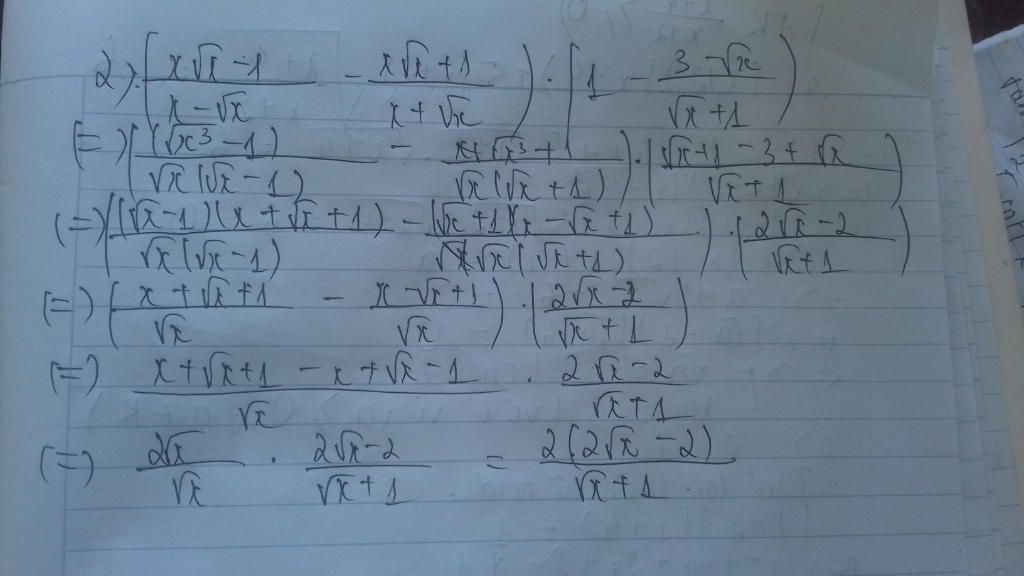 2). ( (x√x - 1)/(x - √x) - (x√x + 1)/(x + √x) ) . ( 1 - (3 - √x)/(√x + 1) )
(=) ( (√x³ - 1)/(√x(√x - 1)) - (√x³ + 1)/(√x(√x + 1)) ) . ( (√x + 1 - 3 + √x)/(√x + 1) )
(=) ( ((√x - 1)(x + √x + 1))/(√x(√x - 1)) - ((√x + 1)(x - √x + 1))/(√x(√x + 1)) ) . ( (2√x - 2)/(√x + 1) )
(=) ( (x + √x + 1)/√x - (x - √x + 1)/√x ) . ( (2√x - 2)/(√x + 1) )
(=) (x + √x + 1 - x + √x - 1)/√x . (2√x - 2)/(√x + 1)
(=) 2√x/√x . (2√x - 2)/(√x + 1) = 2(2√x - 2)/(√x + 1)